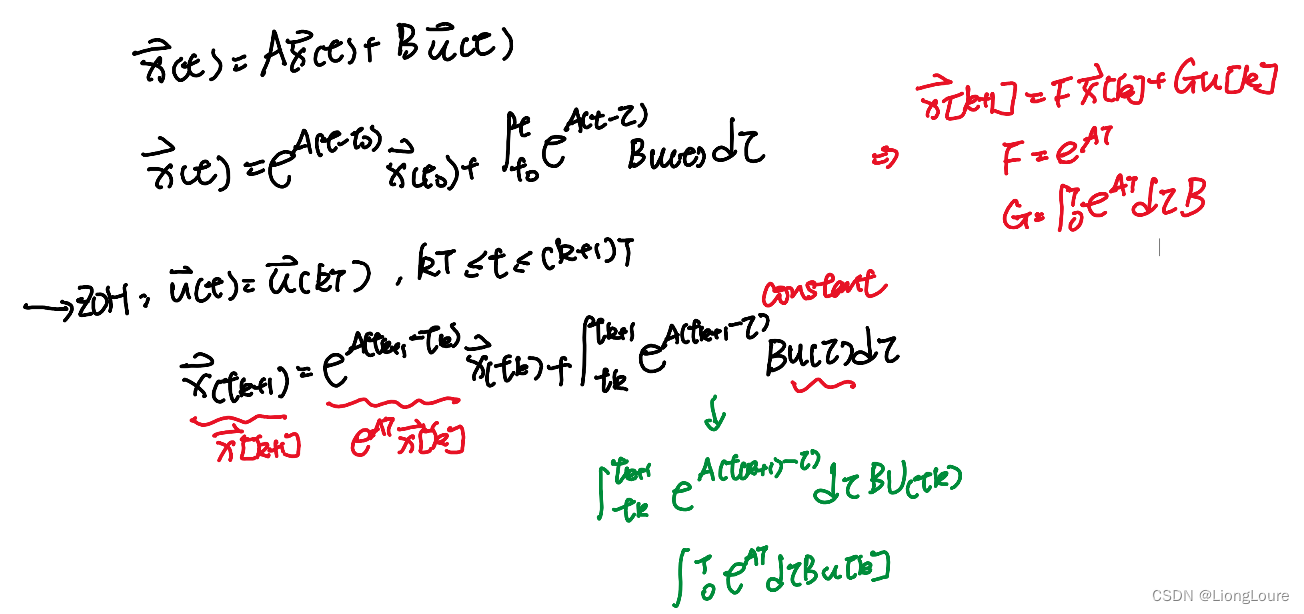 x⃗(t) = Ax⃗(t) + Bu⃗(t)
x⃗(t) = e^{A(t-t₀)} x⃗(t₀) + ∫_{t₀}^{t} e^{A(t-τ)} Bu(t)dτ
⇒ x⃗[k+1] = Fx⃗[k] + Gu[k]
F = e^{AT}
G = ∫_0^T e^{AT}dτB
→ ZOH: u⃗(t) = u⃗(kT), kT ≤ t ≤ (k+1)T
constant
x⃗(t_{k+1}) = e^{A(t_{k+1}-t_k)} x⃗(t_k) + ∫_{t_k}^{t_{k+1}} e^{A(t_{k+1}-τ)} Bu(τ)dτ
x⃗[k+1] e^{AT}x⃗[k] ↓
∫_{t_k}^{t_{k+1}} e^{A(t(k+1)-τ)} dτBU(tk)
∫_0^T e^{AT}dτBu[k]
CSDN @LiongLoure